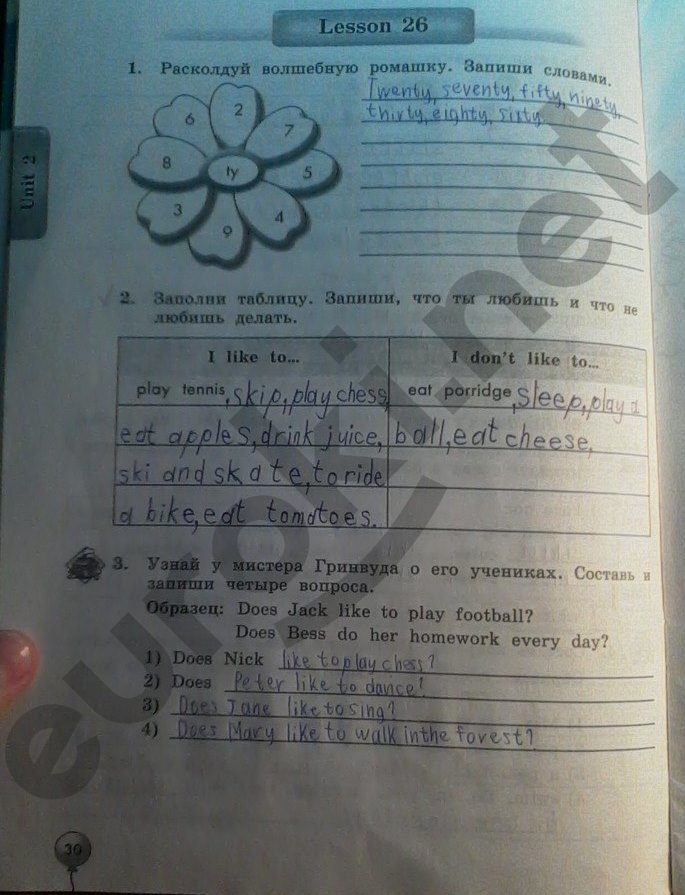 Lesson 26
Unit 2
1. Расколдуй волшебную ромашку. Запиши словами.
Twenty, seventy, fifty, ninety,
thirty, eighty, sixty.
2
6
7
8
ty
5
3
4
9
2. Заполни таблицу. Запиши, что ты любишь и что не
любишь делать.
I like to... I don't like to...
play tennis, skip, play chess, eat porridge, sleep, play a
eat apples, drink juice, ball, eat cheese,
ski and skate, to ride
a bike, eat tomatoes.
3. Узнай у мистера Гринвуда о его учениках. Составь и
запиши четыре вопроса.
Образец: Does Jack like to play football?
Does Bess do her homework every day?
1) Does Nick like to play chess?
2) Does Peter like to dance?
3) Does Jane like to sing?
4) Does Mary like to walk in the forest?
30
euroki.net